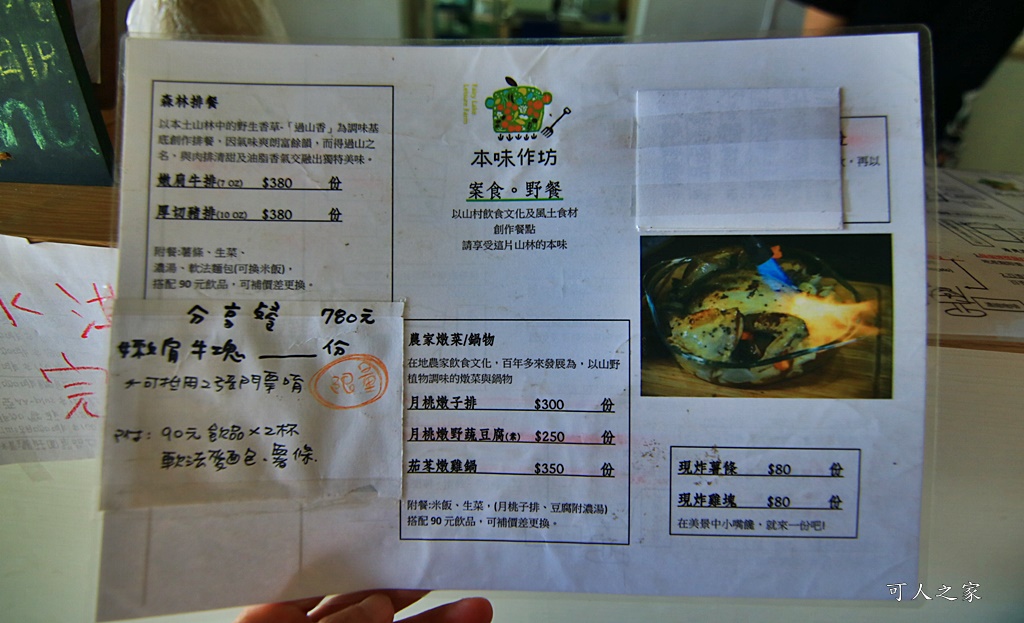 森林排餐
以本土山林中的野生香草-「過山香」為調味基
底創作排餐，因氣味爽朗富餘韻，而得過山之
名，與肉排清甜及油脂香氣交融出獨特美味。
嫩肩牛排(7 OZ) $380 份
厚切豬排(10 OZ) $380 份
附餐:薯條、生菜、
濃湯、軟法麵包(可換米飯)，
搭配 90 元飲品，可補價差更換。
分享餐 780元
嫩肩牛塊 份
限量
可抵用2張門票唷
附: 90元飲品×2杯
軟法麵包、薯條.
本味作坊
案食。野餐
以山村飲食文化及風土食材
創作餐點
請享受這片山林的本味
農家燉菜/鍋物
在地農家飲食文化，百年多來發展為，以山野
植物調味的燉菜與鍋物
月桃燉子排 $300 份
月桃燉野蔬豆腐(素) $250 份
茄苳燉雞鍋 $350 份
附餐:米飯、生菜，(月桃子排、豆腐附濃湯)
搭配 90 元飲品，可補價差更換。
，再以
現炸薯條 $80 份
現炸雞塊 $80 份
在美景中小嘴饞，就來一份吧!
完
可人之家